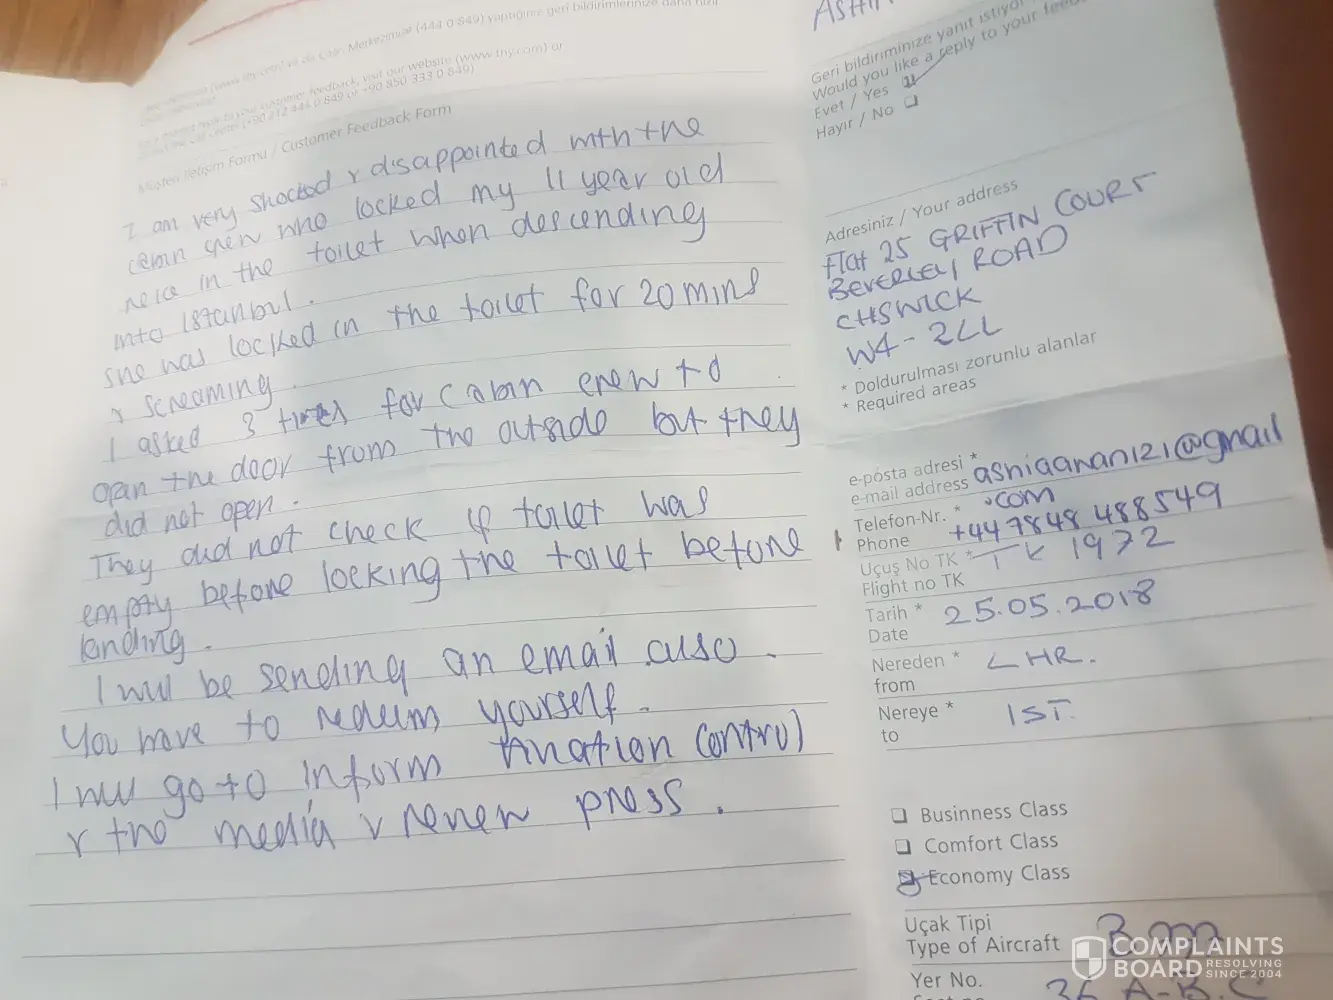 Merkezimize (444 0 849) yaptığınız geri bildirimlerinize daha hızlı
customer feedback, visit our website (www.thy.com) or
(+90 212 444 0 849 or +90 850 333 0 849)
Müşteri İletişim Formu / Customer Feedback Form
I am very shocked & disappointed with the
cabin crew who locked my 11 year old
neice in the toilet when descending
into Istanbul.
she was locked in the toilet for 20 mins
& screaming.
I asked 3 times for cabin crew to
open the door from the outside but they
did not open.
They did not check if toilet was
empty before locking the toilet before
landing.
I will be sending an email also.
You have to redeem yourself.
I will go to inform aviation control
& the media & press.
Geri bildiriminize yanıt istiyor
Would you like a reply to your feed
Evet / Yes
Hayır / No
Adresiniz / Your address
Flat 25 GRIFFIN COURT
BEVERLEY ROAD
CHSWICK
W4-2LL
* Doldurulması zorunlu alanlar
* Required areas
e-posta adresi *
e-mail address ashiaanan121@gmail
.com
Telefon-Nr. *
Phone +44 7848 488549
Uçuş No TK *
Flight no TK TK 1972
Tarih *
Date 25.05.2018
Nereden *
from LHR.
Nereye *
to IST.
Businness Class
Comfort Class
Economy Class
Uçak Tipi
Type of Aircraft
Yer No.
36 A-B.C
COMPLAINTS
BOARD RESOLVING
SINCE 2004